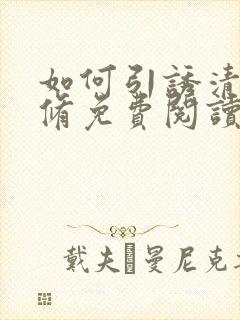 如何引誘清
脩免費閱讀
戴夫 曼尼克